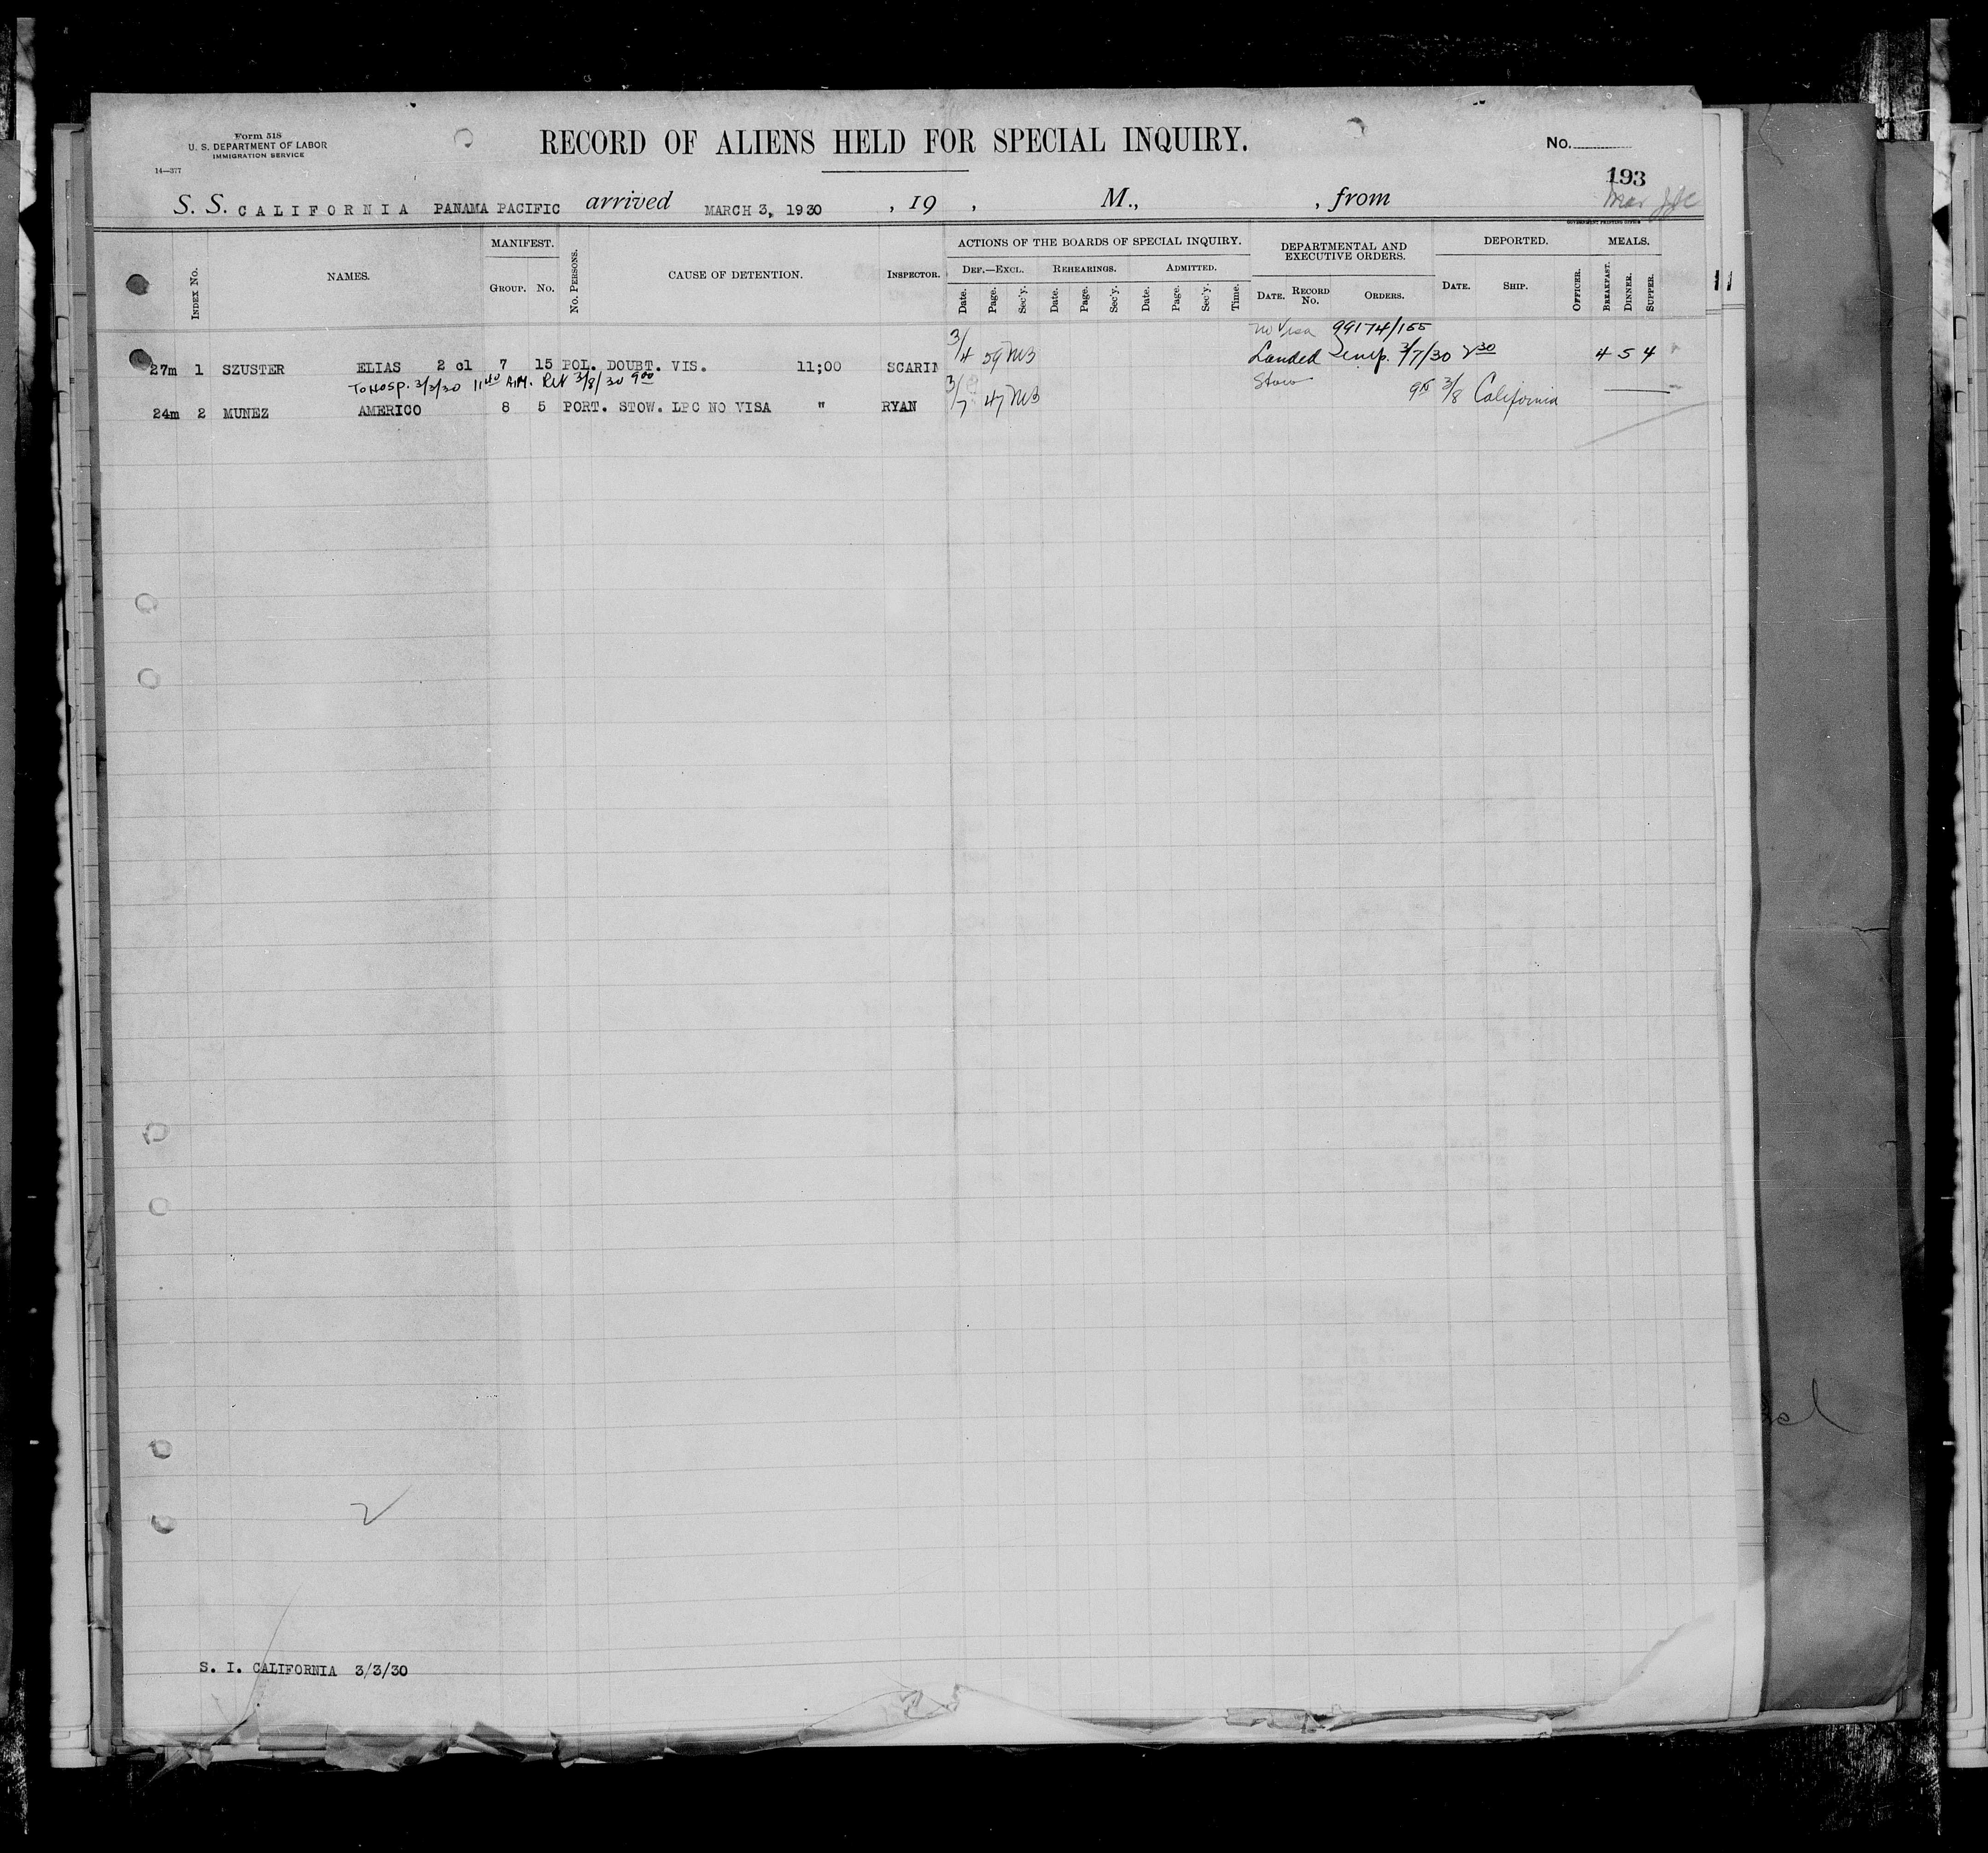 Form 518
U. S. DEPARTMENT OF LABOR
IMMIGRATION SERVICE
14—377
RECORD OF ALIENS HELD FOR SPECIAL INQUIRY.
No.
193
Mar
S. S. CALIFORNIA PANAMA PACIFIC arrived MARCH 3, 1930 , 19 , M., , from
GOVERNMENT PRINTING OFFICE
INDEX No. NAMES. MANIFEST. GROUP. No. No. PERSONS. CAUSE OF DETENTION. INSPECTOR. ACTIONS OF THE BOARDS OF SPECIAL INQUIRY. DEF.—EXCL. REHEARINGS. ADMITTED. Date. Page. Sec'y. Date. Page. Sec'y. Date. Page. Sec'y. Time. DEPARTMENTAL AND EXECUTIVE ORDERS. DATE. RECORD No. ORDERS. DEPORTED. DATE. SHIP. OFFICER. MEALS. BREAKFAST. DINNER. SUPPER.
no Visa 99174/155
27m 1 SZUSTER ELIAS 2 cl 7 15 POL. DOUBT. VIS. 11;00 SCARIN 3/4 59 MB Landed temp. 3/7/30 2 30 4 5 4
To Hosp. 3/3/30 11 40 A.M. Ret 3/8/30 9 00
Stow
24m 2 MUNEZ AMERICO 8 5 PORT. STOW. LPC NO VISA " RYAN 3/7 47 MB 3/8 California
2
S. I. CALIFORNIA 3/3/30